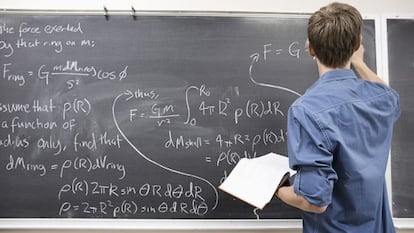 the force exerted
by that ring on m:
F ring = G m dM ring / s² cos φ
Assume that ρ(R)
a function of
radius only, find that
dM ring = ρ(R) dV ring
= ρ(R) 2π R sin θ R dθ dR
= 2π R² ρ(R) sin θ dθ dR
thus,
F = G m / r² ∫ 0 R₀ 4π R² ρ(R) dR
dM shell = 4π R² ρ(R) dR
F = G